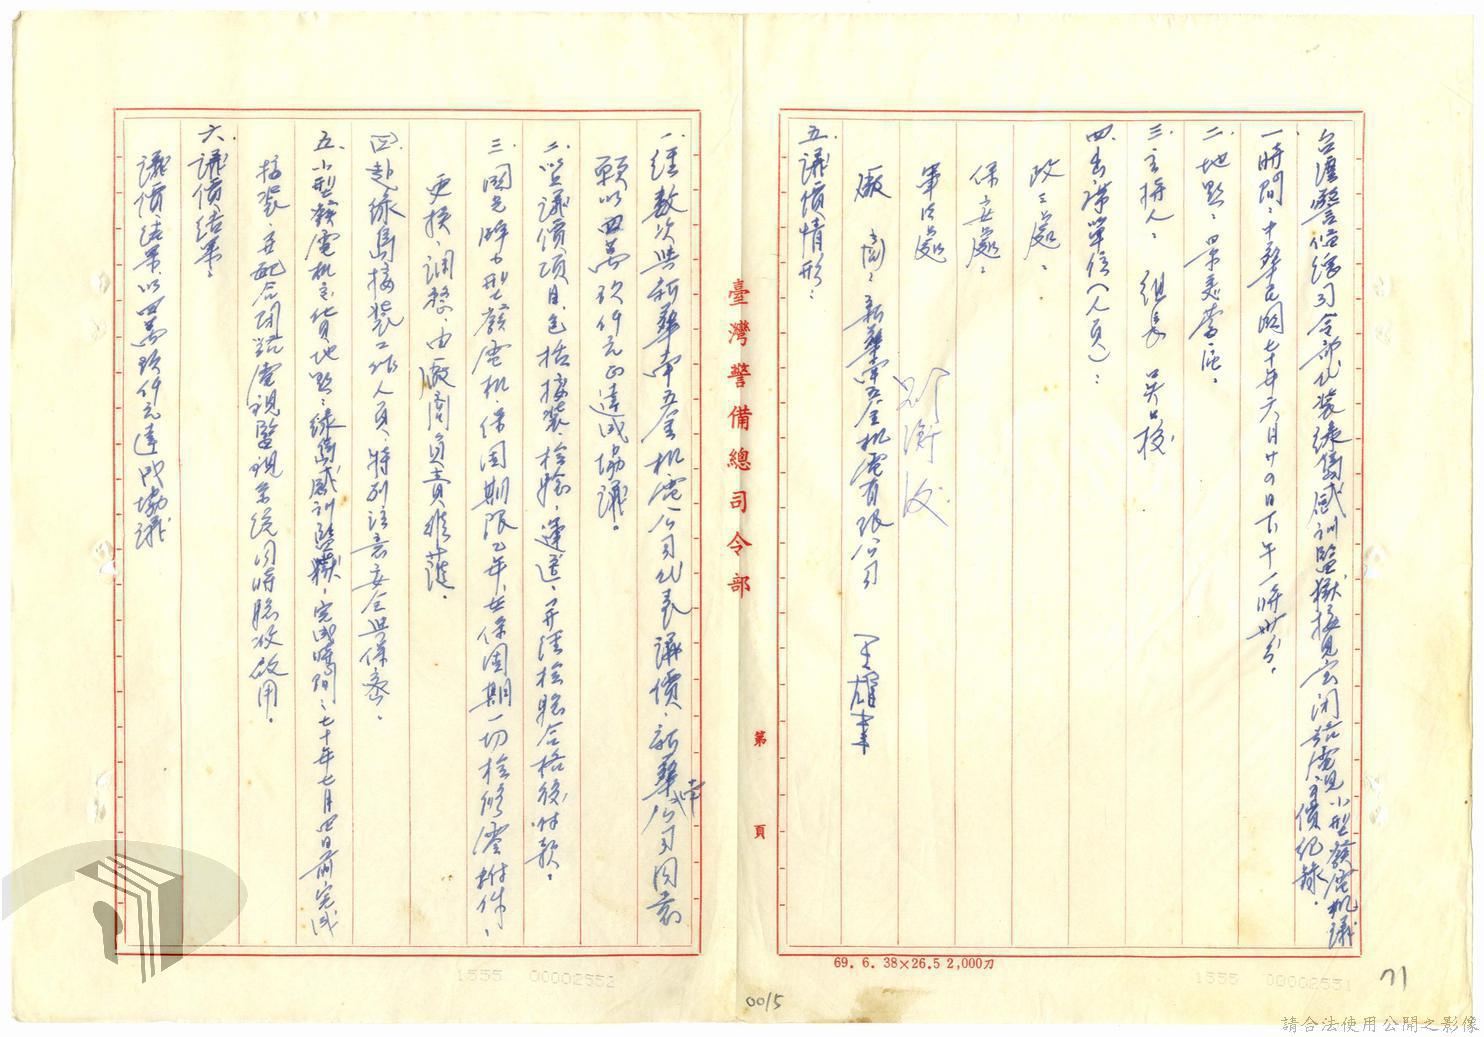 台灣警備總司令部代裝綠島感訓監獄接見室閉路電視小型發電機議
價紀錄。
一、時間：中華民國七十年六月廿四日下午一時卅分。
二、地點：景美營區。
三、主持人：組長 吳上校
四、出席單位（人員）：
政三處：
保安處：
軍法處
廠商：新華南五金機電有限公司 王雄
五、議價情形：
臺灣警備總司令部
第 頁
一、經數次與新華南五金機電公司代表議價，新華南公司同意
願以四萬玖仟元正達成協議。
二、以上議價項目包括接裝、檢驗、運送，並經檢驗合格後付款。
三、國光牌小型發電機保固期限乙年，在保固期一切檢修零附件，
更換、調整，由廠商負責維護。
四赴綠島接裝工作人員，特別注意安全與保密。
五、小型發電機交貨地點：綠島感訓監獄，完成時間：七十年七月四日前完成
接裝，並配合閉路電視監視系統同時驗收啟用。
六、議價結果：
議價結果以四萬玖仟元達成協議
69. 6. 38×26.5 2,000刀
1555 00002552
1555 00002551
0015
71
請合法使用公開之影像